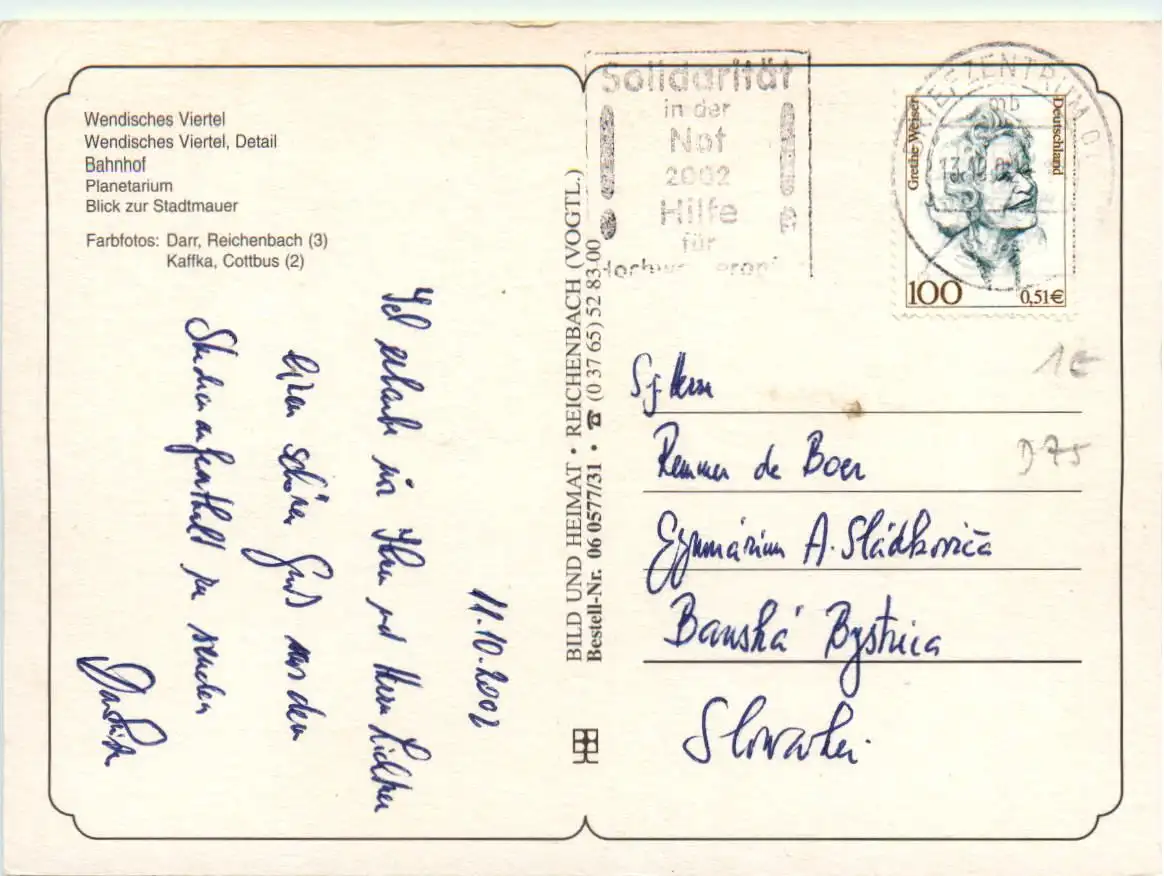 Wendisches Viertel
Wendisches Viertel, Detail
Bahnhof
Planetarium
Blick zur Stadtmauer
Farbfotos: Darr, Reichenbach (3)
Kaffka, Cottbus (2)
11.10.2002
Ich erlaube mir Ihnen und Herrn Lichtner
einen schönen Gruß aus dem
Studienaufenthalt zu senden
BILD UND HEIMAT • REICHENBACH (VOGTL.)
Bestell-Nr. 06 0577/31 • ☎ (0 37 65) 52 83 00
Solidarität
in der
Not
2002
Hilfe
für
BRIEFZENTRUM 01
mb
Grethe Weiser
Deutschland
100
0,51€
1€
D75
Herrn
Remmer de Boer
Gymnárium A. Sládkoviča
Banská Bystrica
Slowakei